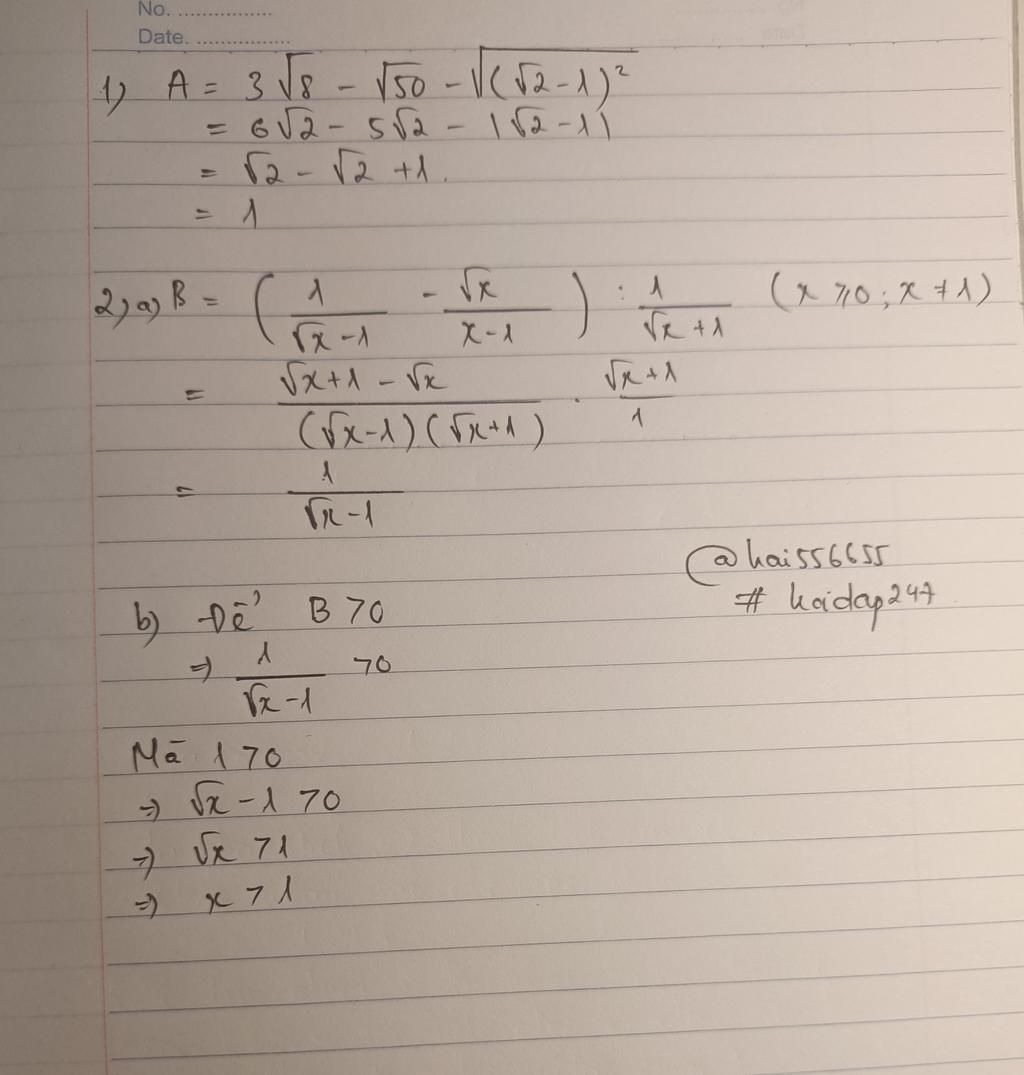 No. ................
Date. ................
1) A = 3√8 - √50 - √(√2-1)²
= 6√2 - 5√2 - |√2-1|
= √2 - √2 +1.
= 1
2) a) B = (1/(√x-1) - √x/(x-1)) : 1/(√x+1) (x ≥ 0; x ≠ 1)
= (√x+1-√x)/((√x-1)(√x+1)) . (√x+1)/1
= 1/(√x-1)
@hai556655
# hoidap247
b) Để B > 0
⇒ 1/(√x-1) > 0
Mà 1 > 0
⇒ √x-1 > 0
⇒ √x > 1
⇒ x > 1